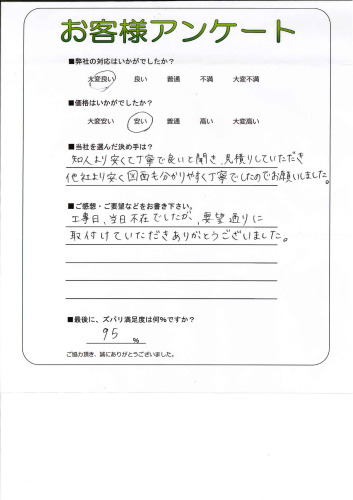 お客様アンケート
■弊社の対応はいかがでしたか？
大変良い 良い 普通 不満 大変不満
■価格はいかがでしたか？
大変安い 安い 普通 高い 大変高い
■当社を選んだ決め手は？
知人より安くて丁寧で良いと聞き、見積りしていただき
他社より安く図面も分かりやすく丁寧でしたのでお願いしました。
■ご感想・ご要望などをお書き下さい。
工事日、当日不在でしたが、要望通りに
取付けていただきありがとうございました。
■最後に、ズバリ満足度は何%ですか？
95 %
ご協力頂き、誠にありがとうございました。